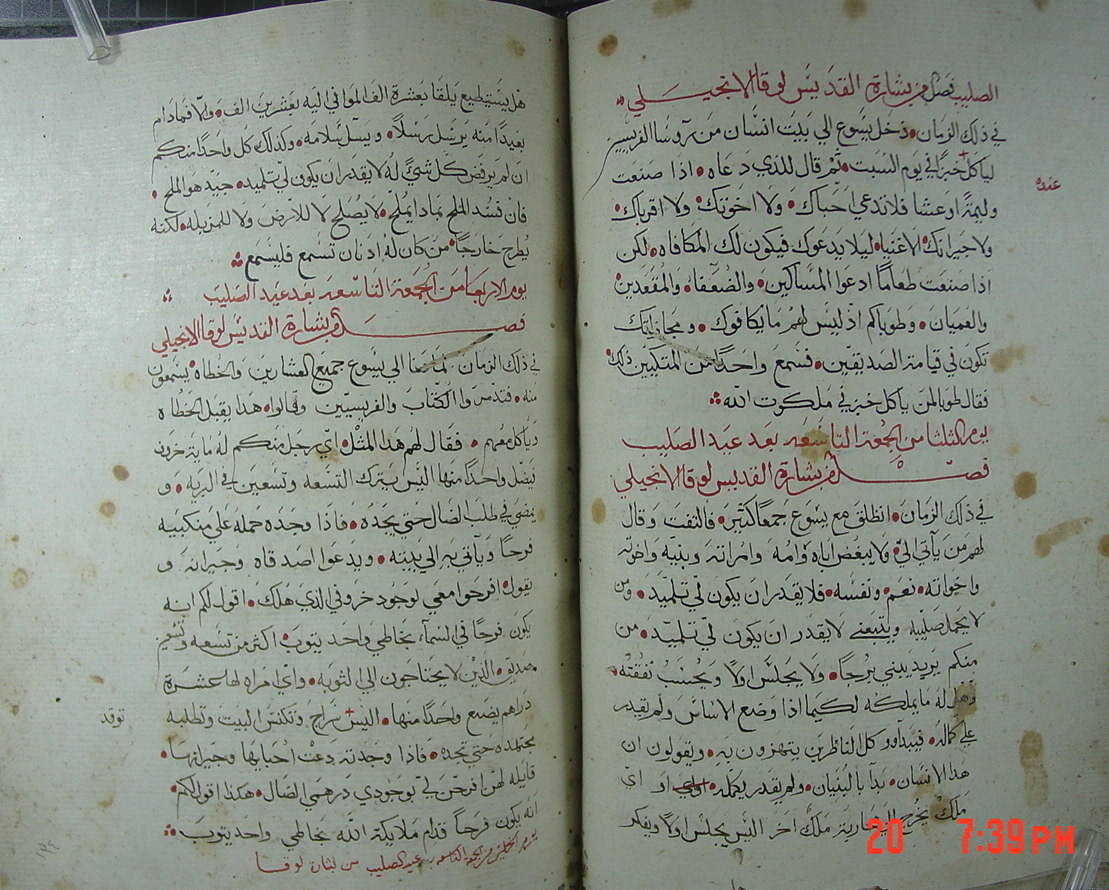 الصليب فصل من بشارة القديس لوقا الانجيلي
في ذلك الزمان دخل يسوع الي بيت انسان من روسا الفريسيين
لياكل خبزا في يوم السبت ثم قال للذي دعاه اذا صنعت
عنده
وليمة او عشا فلا تدعي احباك ولا اخوتك ولا اقرباك
ولا جيرانك الاغنيا ليلا يدعوك فيكون لك المكافاه لكن
اذا صنعت طعاما ادعوا المساكين والضعفا والمقعدين
والعميان وطوباكم اذ ليس لهم ما يكافوك ومجافاتك
تكون في قيامة الصديقين فسمع واحدا من المتكيين ذلك
فقال طوبا لمن ياكل خبز في ملكوت الله
يوم الثلثا من الجمعة التاسعه بعد عيد الصليب
فصل من بشارة القديس لوقا الانجيلي
في ذلك الزمان انطلق مع يسوع جمعا كثير فالتفت وقال
لهم من ياتي الي ولا يبغض اباه وامه وامراته وبنيه واخوته
واخواته نعم ونفسه فلا يقدر ان يكون لي تلميد ومن
لا يحمل صليبه ويتبعني لا يقدر ان يكون لي تلميد من
منكم يريد يبني برجا ولا يجلس اولا ويحسب نفقته
وهل له ما يملكه لكيما اذا وضع الاساس ولم يقدر
علي كماله فيبداو كل الناظرين يتهزون به ويقولون ان
هذا الانسان بدا بالبنيان ولم يقدر يكمله او اي
ملك يخرج الي محاربة ملك اخر اليس يجلس اولا ويفكر
هل يستطيع يلقا بعشرة الف الموافي اليه بعشرين الف والا فمادام
بعيدا منه يرسل رسلا ويسل سلامه وكذلك كل واحدا منكم
ان لم يرفض كل شي له لا يقدر ان يكون لي تلميد جيد هو الملح
فان فسد الملح بمادا يملح لا يصلح لا للارض ولا للمزبله لكنه
يطرح خارجا من كان له ادنان تسمع فليسمع
يوم الاربعا من الجمعة التاسعه بعد عيد الصليب
فصل من بشارة القديس لوقا الانجيلي
في ذلك الزمان لما دنا الي يسوع جميع العشارين والخطاه يسمعون
منه فتدمروا الكتاب والفريسيين وقالوا هدا يقبل الخطاه
وياكل معهم فقال لهم هدا المثل اي رجل منكم له مايه خروف
فيضل واحدا منها اليس يترك التسعه وتسعين في البريه و
يمضي في طلب الضال حتي يجده فاذا وجده حمله علي منكبيه
فرحا وياتي به الي بيته ويدعوا اصدقاه وجيرانه و
يقول افرحوا معي لوجود خروفي الذي هلك اقول لكم انه
يكون فرحا في السماء بخاطي واحد يتوب اكثر من تسعه وتسعين
صديق الذين لا يحتاجون الي التوبه واي امراه لها عشرة
دراهم يضيع واحدا منها اليس سراج وتكنس البيت وتطلبه
توقد
مجتهده حتي تجده فاذا وجدته دعت احبايها وجيرانها
قايله لهن افرحن لي بوجودي درهمي الضال هكذا اقول لكم
انه يكون فرحا قدام ملايكة الله بخاطي واحد يتوب
يوم الخميس من الجمعة التاسعه عيد الصليب من بشارة لوقا
١٩٢
20 7:39 PM